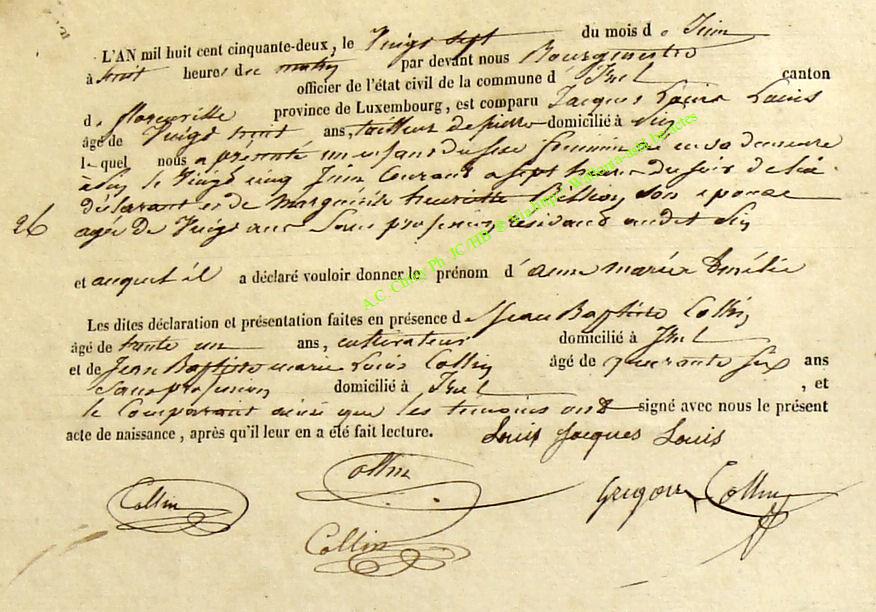 L'AN mil huit cent cinquante-deux, le Vingt sept du mois de Juin
à huit heures du matin par devant nous Bourgmestre
officier de l'état civil de la commune d' Izel canton
de Florenville province de Luxembourg, est comparu Jacques Louis Louis
âgé de Vingt huit ans, tailleur de pierre domicilié à
lequel nous a présenté un enfant du sexe féminin né en sa demeure
à le Vingt cinq Juin Courant a sept heures du soir de lui
déclarant et de Marguerite henriette son epouse
agée de Vingt ans Sans profession residant audit
26
et auquel il a déclaré vouloir donner le prénom d' anne marie Amélie
Les dites déclaration et présentation faites en présence de Jean Baptiste Collin
âgé de trente un ans, cultivateur domicilié à Izel
et de Jean Baptiste marie Louis Collin âgé de quarante six ans
Sans profession domicilié à Izel , et
le Comparant ainsi que les temoins ont signé avec nous le présent
acte de naissance, après qu'il leur en a été fait lecture. Louis Jacques Louis
Collin
Collin Gregoire Collin
Collin
A.C. Chiny Ph JC/HB